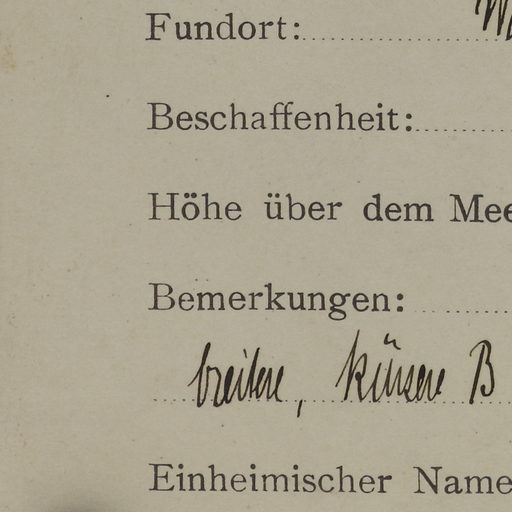 Fundort:
Beschaffenheit:
Höhe über dem Mee
Bemerkungen:
breitere, kürzere B
Einheimischer Name